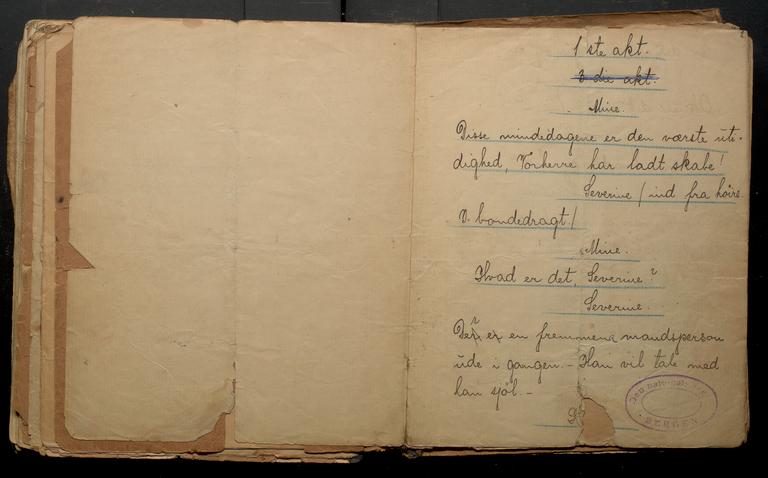 1ste akt.
3die akt.
Mine.
Disse mindedagene er den værste uti-
dighed, Vorherre har ladt skabe!
Severine / ind fra höire.
V. bondedragt. /
Mine.
Hvad er det, Severine?
Severine.
er en fremmend mandsperson
ude i gangen. - Han vil tale med
han sjöl. -
BERGEN